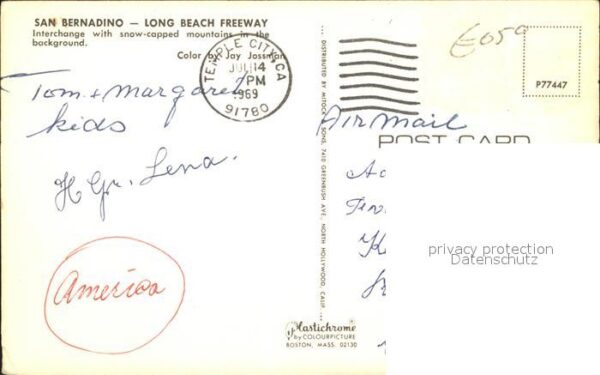 SAN BERNADINO — LONG BEACH FREEWAY
Interchange with snow-capped mountains in the
background.
Color by Jay Jossman
TEMPLE CITY, CA
JUL 14
PM
1969
91780
£050
P77447
Tom + Margaret
kids
H Gr. Lena.
America
Air Mail
POST CARD
DISTRIBUTED BY MITOCK & SONS, 7410 GREENBUSH AVE., NORTH HOLLYWOOD, CALIF.
privacy protection
Datenschutz
Plastichrome
by COLOURPICTURE
BOSTON, MASS. 02130